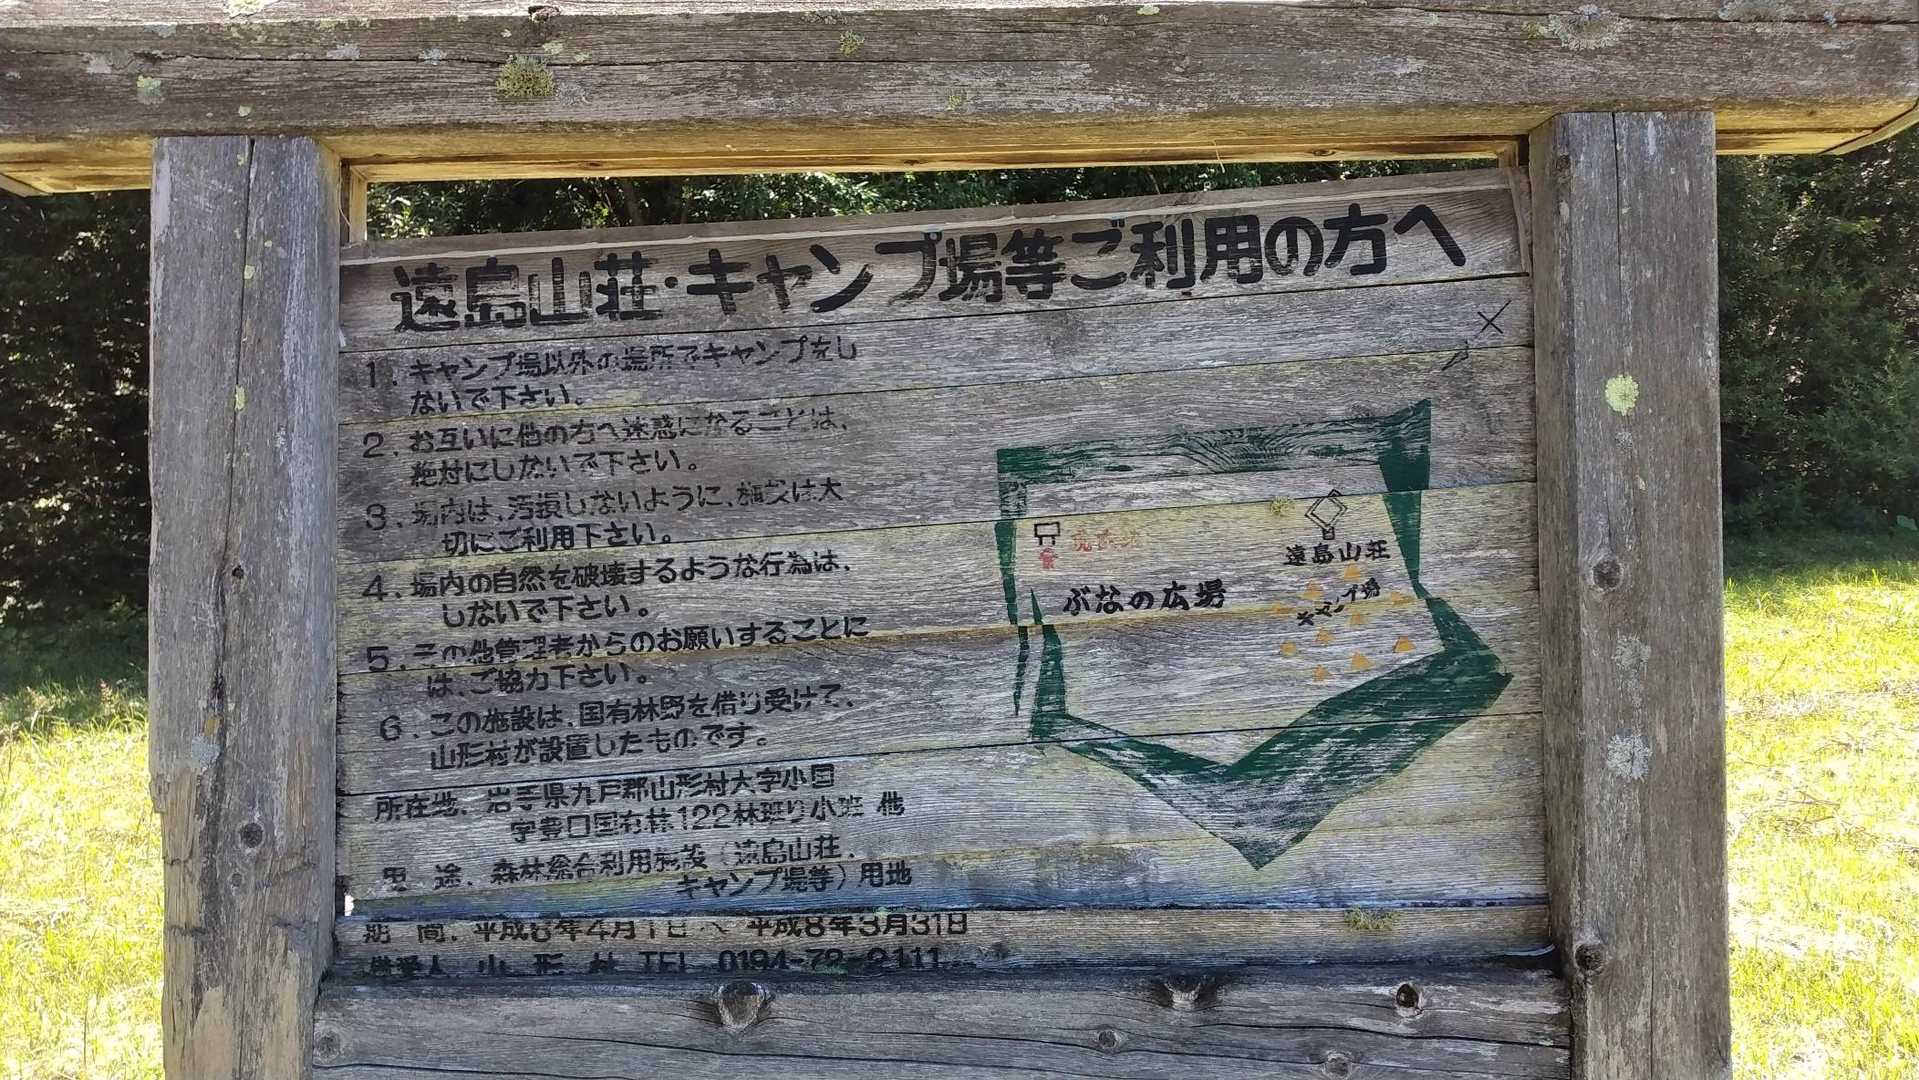 遠島山荘・キャンプ場等ご利用の方へ
1. キャンプ場以外の場所でキャンプをし
ないで下さい。
2. お互いに他の方へ迷惑になることは、
絶対にしないで下さい。
3. 場内は、汚損しないように、施設は大
切にご利用下さい。
4. 場内の自然を破壊するような行為は、
しないで下さい。
5. この他管理者からのお願いすることに
は、ご協力下さい。
6. この施設は、国有林野を借り受けて、
山形村が設置したものです。
所在地. 岩手県九戸郡山形村大字小国
字豊口国有林122林班り小班 他
用 途. 森林総合利用施設（遠島山荘.
キャンプ場等）用地
期 間. 平成8年4月1日 〜 平成8年3月31日
借受人. 山 形 村 TEL 0194-72-2111
遠島山荘
キャンプ場
ぶなの広場